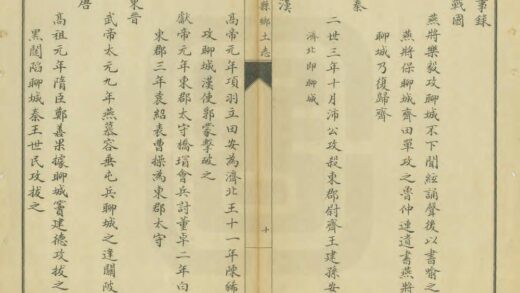 事錄
戰國
燕將樂毅攻聊城不下聞絃誦聲後以書喻之
燕將保聊城齊田單攻之魯仲連遺書燕將
聊城乃復歸齊
秦
二世三年十月沛公攻殺東郡尉齊王建孫安
濟北即聊城
漢
縣鄉土志
十
高帝元年項羽立田安為濟北王十一年陳豨
攻聊城漢使郭蒙擊破之
獻帝元年東郡太守橋瑁會兵討董卓二年向
東郡三年袁紹表曹操為東郡太守
東晉
武帝太元九年燕慕容垂屯兵聊城之逢關陂
唐
高祖元年隋臣鄭善果據聊城竇建德攻拔之
黑闥陷聊城秦王世民攻拔之